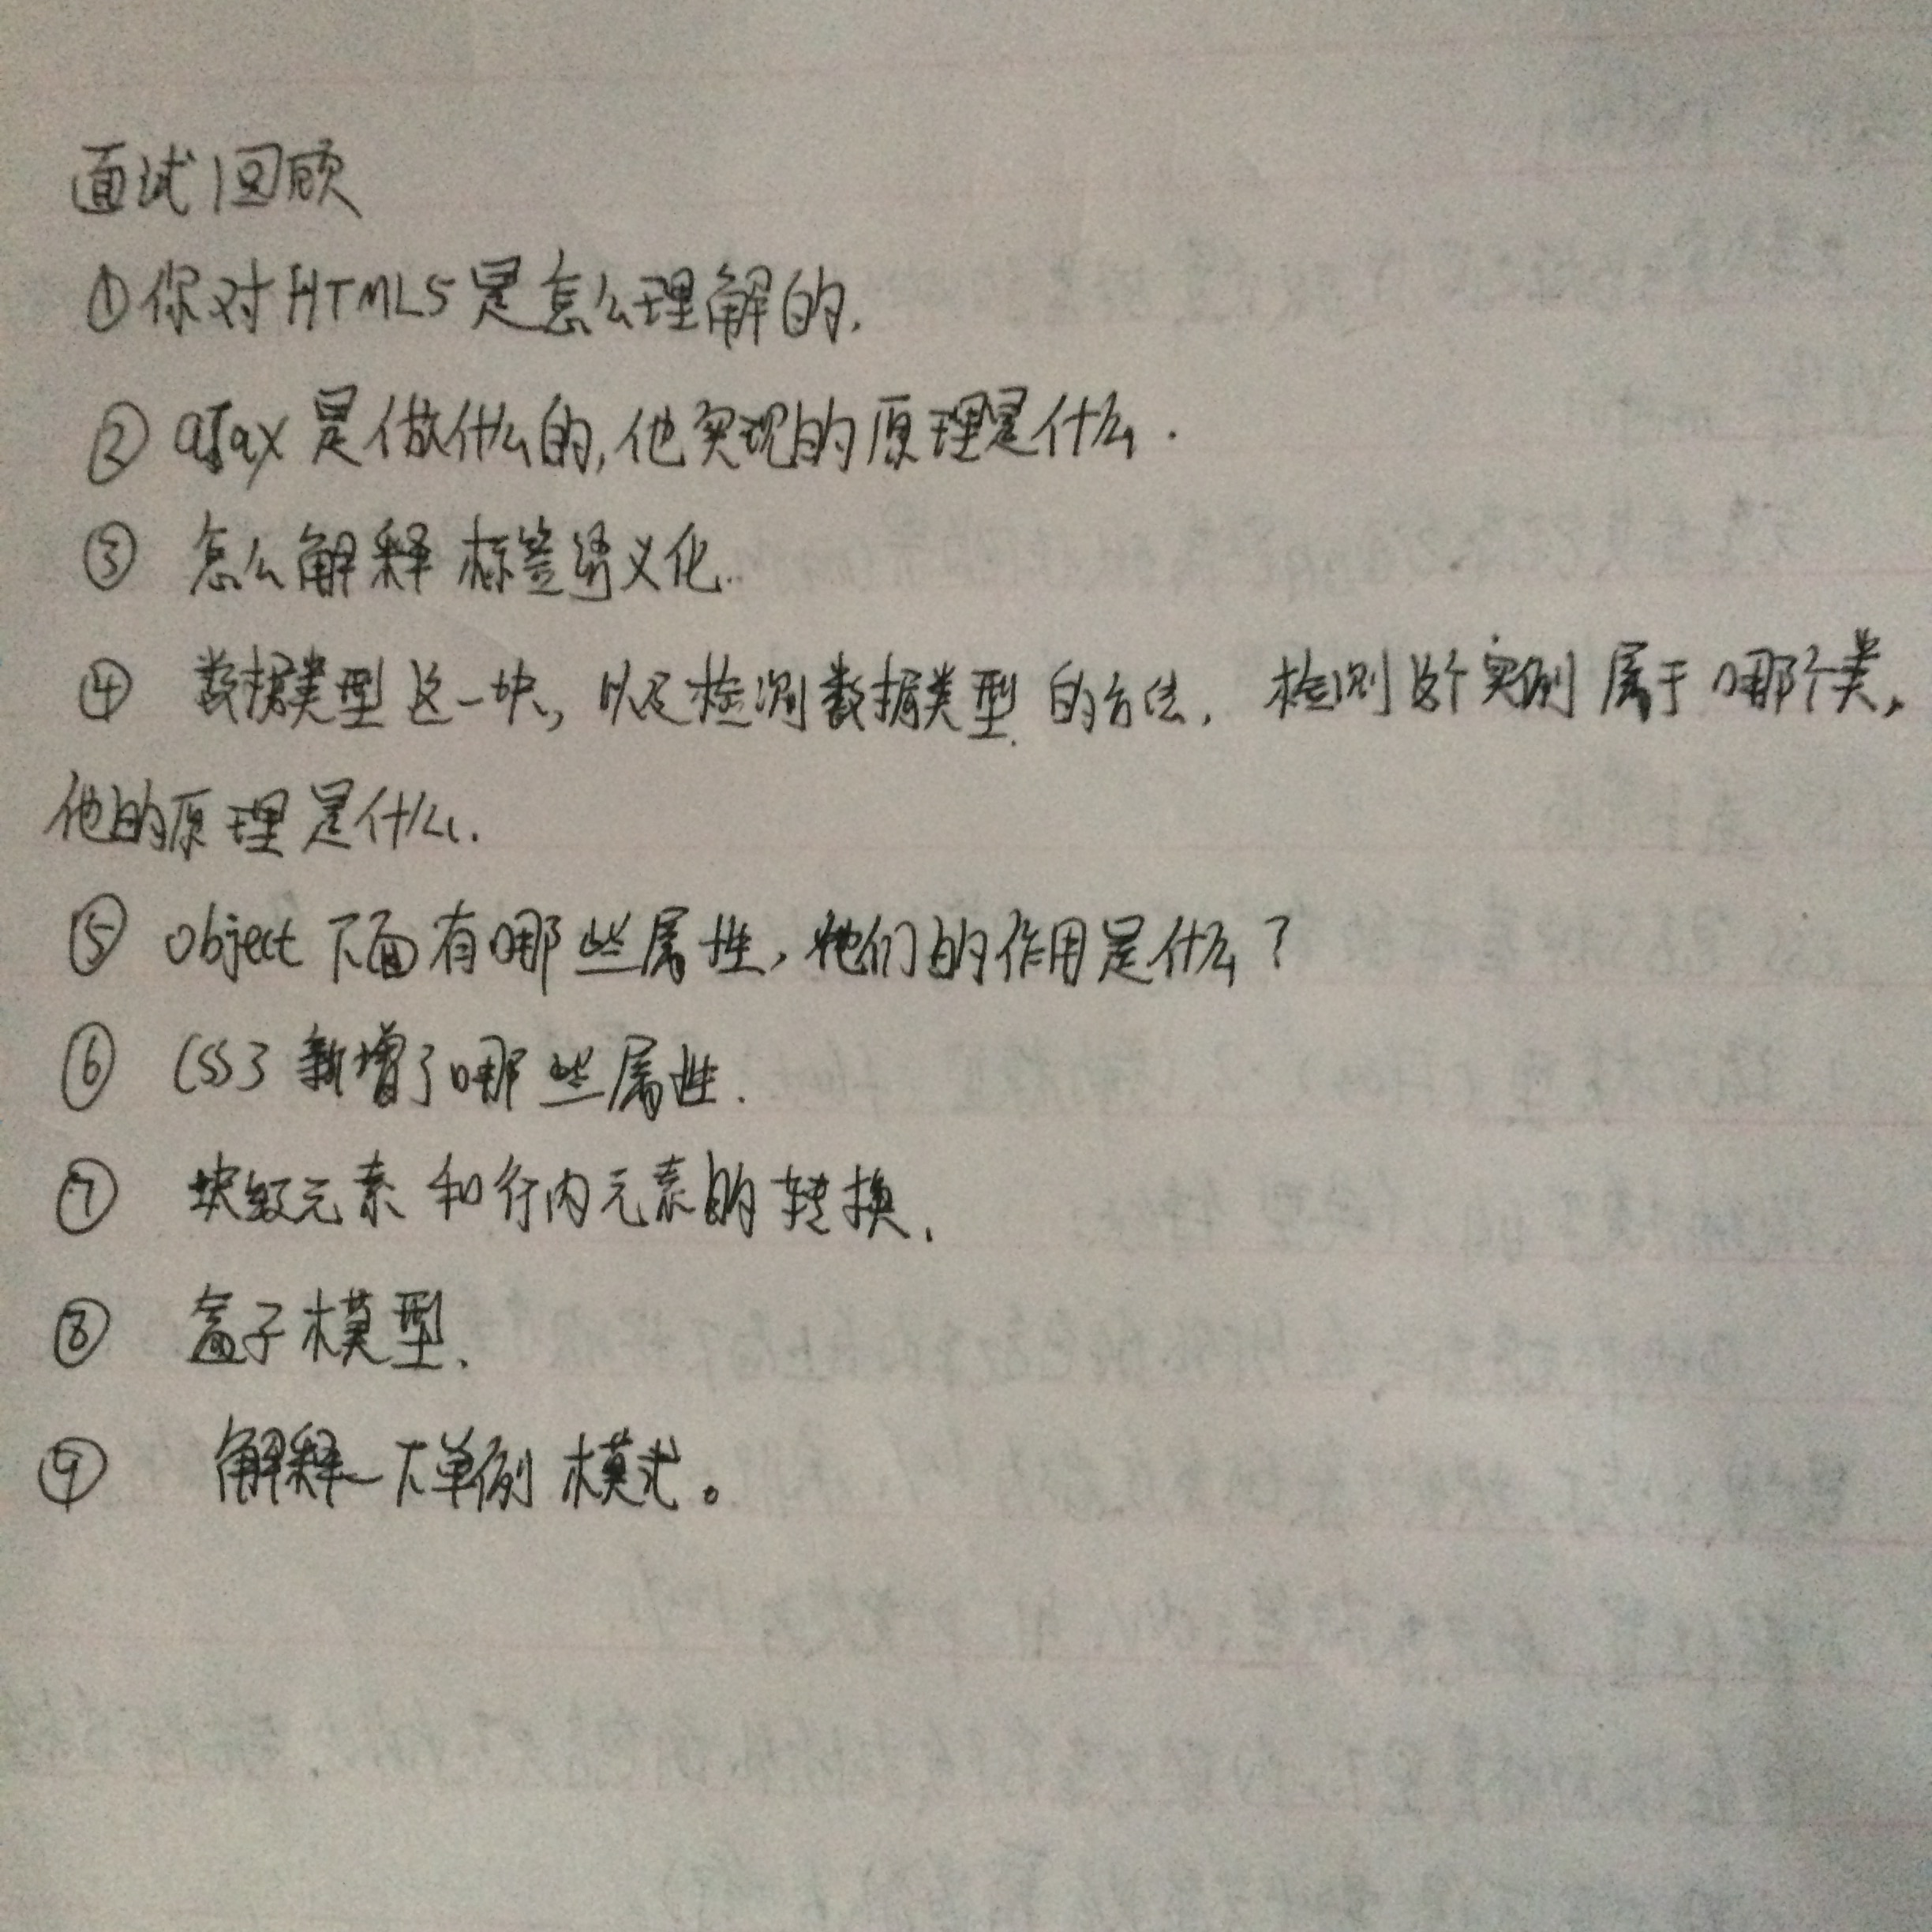 面试回顾
①你对HTML5是怎么理解的.
② ajax 是做什么的,他实现的原理是什么.
③ 怎么解释 标签语义化..
④ 数据类型这一块,以及检测数据类型.的方法, 检测这个实例 属于哪个类,
他的原理是什么.
⑤ object 下面有哪些属性,他们的作用是什么?
⑥ CSS3 新增了哪些属性.
⑦ 块级元素 和行内元素的 转换.
⑧ 盒子模型.
⑨ 解释一下单例模式。